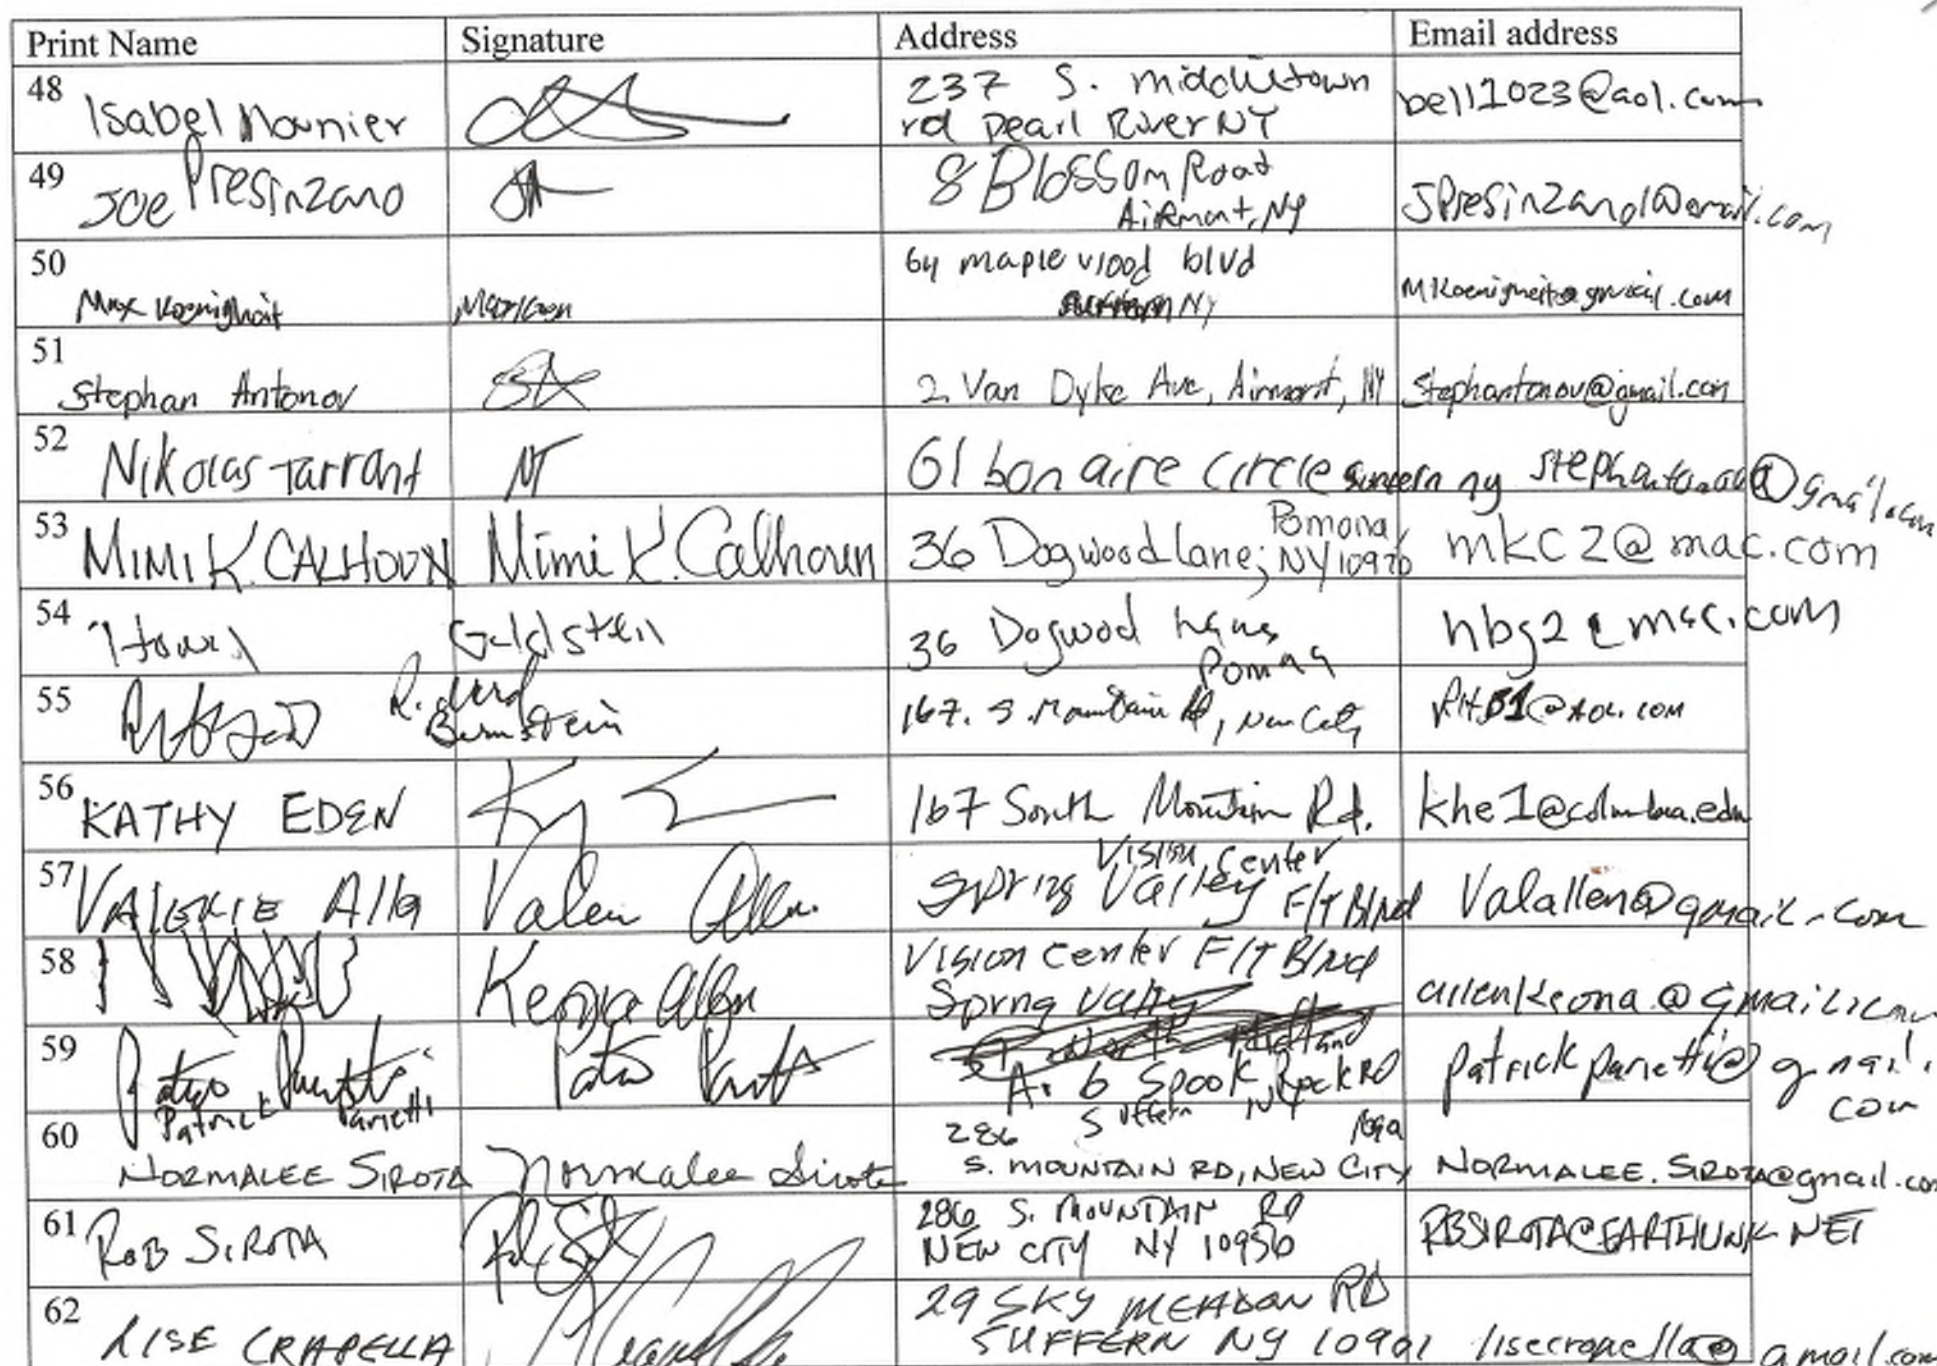 Print Name Signature Address Email address
48 Isabel Mounier 237 S. Middletown rd Pearl River NY bell1023@aol.com
49 Joe Presinzano 8 Blossom Road Airmont, NY JPresinzano1@gmail.com
50 Max 64 maplewood blvd suffern NY
51 Stephan Antonov 2 Van Dyke Ave, Airmont, NY Stephantonov@gmail.com
52 Nikolas Tarrant NT 61 bon aire circle suffern ny stephantonov@gmail.com
53 MIMI K. CALHOUN Mimi K. Calhoun 36 Dogwood lane; Pomona NY 10970 mkc2@mac.com
54 Goldstein 36 Dogwood Pomona hbg2@mac.com
55 Bernstein 167. S. Mountain Rd, New City RHB1@AOL.COM
56 KATHY EDEN 167 South Mountain Rd. khe1@columbia.edu
57 VALERIE Valerie Allen Vision Center Spring Valley F/T Blvd Valallen@gmail.com
58 Allen Vision Center F/T Blvd Sprng Valley allenkeona@gmail.com
59 Patrick Parietti 6 Spook Rock RD Suffern NY patrickparietti@gmail.com
60 NORMALEE SIROTA Normalee Sirota 286 S. MOUNTAIN RD, NEW CITY NORMALEE.SIROTA@gmail.com
61 ROB SIROTA 286 S. MOUNTAIN RD NEW CITY NY 10956 RBSIROTA@EARTHLINK.NET
62 LISE CRAPELLA 29 SKY MEADOW RD SUFFERN NY 10901 lisecrapella@gmail.com